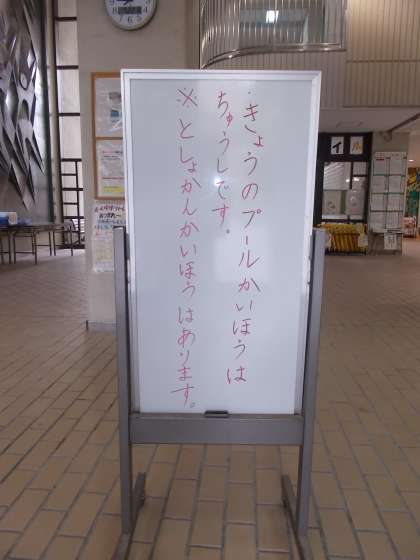 ・きょうのプールかいほうは
ちゅうしです。
※としょかんかいほうはあります。
イル